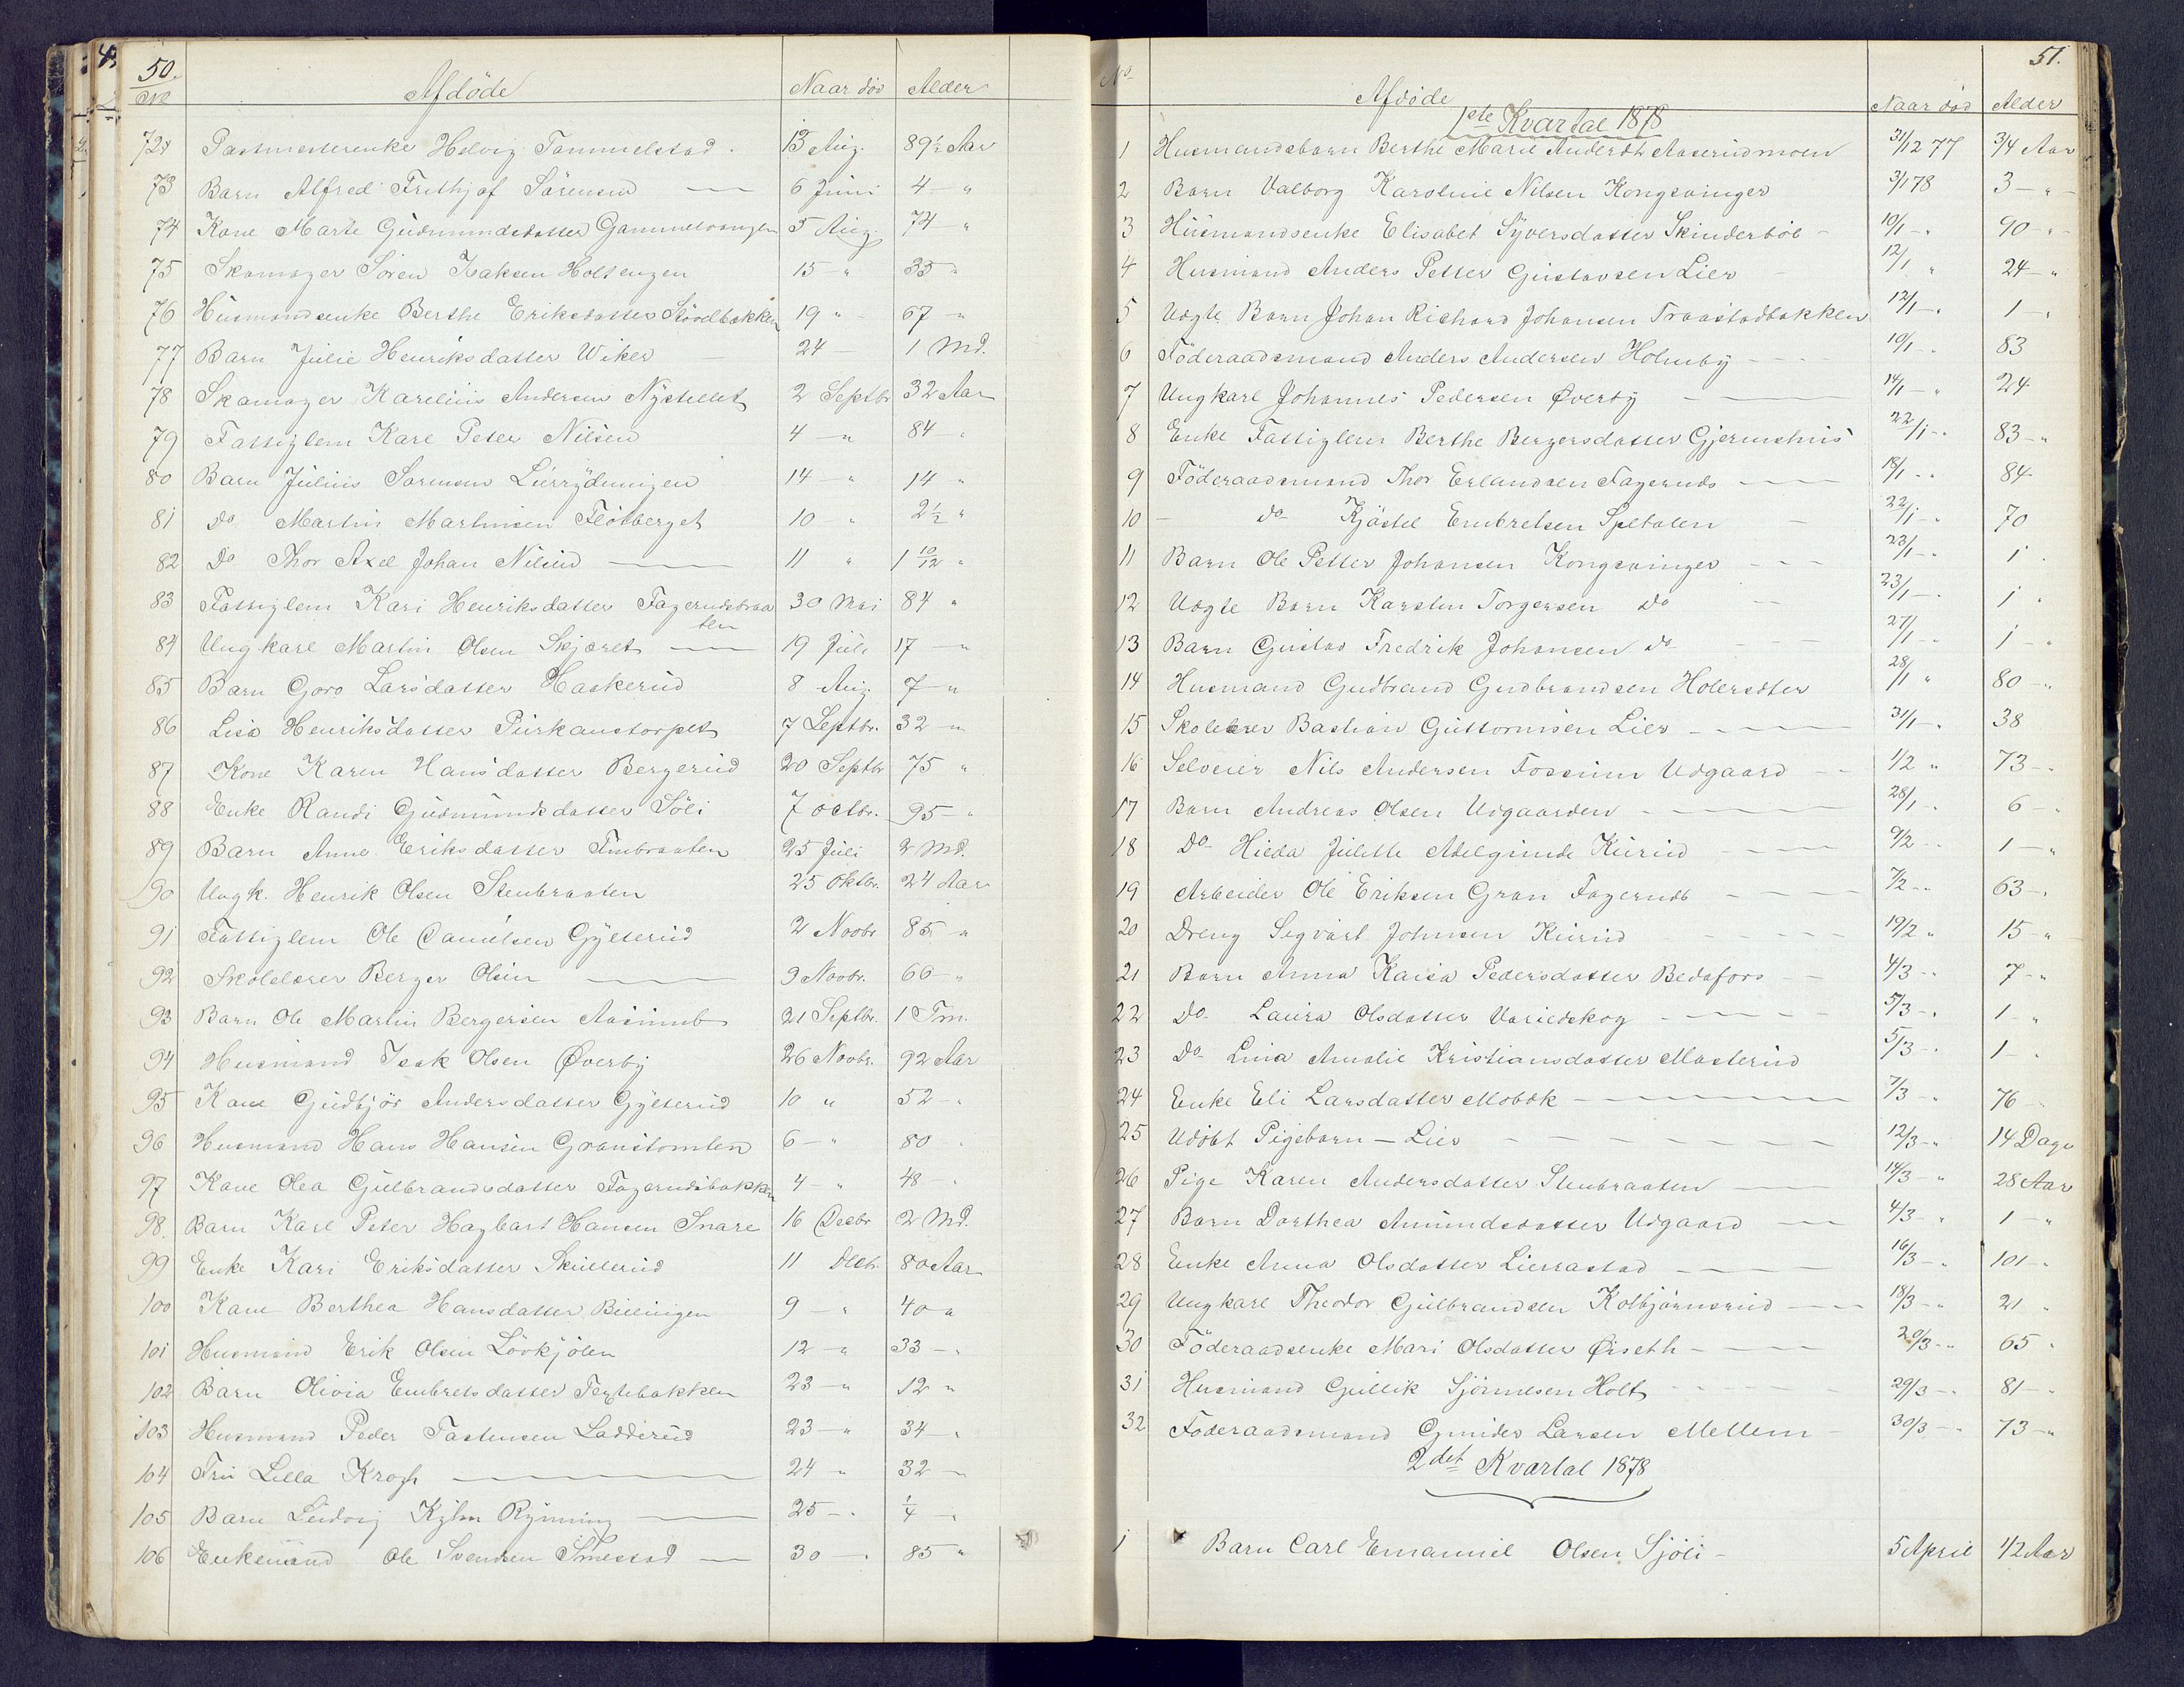 50.
No Afdöde Naar död Alder
72 Postmesterenke Helvig Tommelstad. 13 Aug. 89½ Aar
73 Barn Alfred Frithjof Sörensen — 6 Juni 4 — "
74 Kone Marte Gudmundsdatter Gammelvangen 5 Aug. 74 — "
75 Skomager Sören Isaksen Holtengen 15 — " 35 "
76 Husmandsenke Berthe Eriksdatter Stövelbakken 19 " 67 — "
77 Barn Julie Henriksdatter Wiker 24 — 1 Md.
78 Skomager Karelius Andersen Nystellet 2 Septbr 32 Aar
79 Fattiglem Karl Peter Nilsen 4 — " 84 "
80 Barn Julius Sörensen Lierrydningen 14 — " 14 "
81 Do Martin Martinsen Flötberget 10 " 2½ "
82 Do Thor Axel Johan Nilsen — 11 " 1 10/12 "
83 Fattiglem Kari Henriksdatter Fagerudsbraa 30 Mai 84 "
ten
84 Ungkarl Martin Olsen Skjæret — 19 Juli 17 — "
85 Barn Goro Larsdatter Haskerud 8 Aug. 7 — "
86 Lisa Henriksdatter Purkanstorpet 7 Septbr. 32 — "
87 Kone Karen Hansdatter Bergerud 20 Septbr 75 "
88 Enke Randi Gudmundsdatter Söli 7 octbr. 95 — "
89 Barn Anne Eriksdatter Finbraaten 25 Juli 2 Md.
90 Ungk. Henrik Olsen Stenbraaten 25 Oktbr. 24 Aar
91 Fattiglem Ole Danielsen Gylterud 2 Novbr 85 "
92 Skolelærer Berger Olsen — 9 Novbr. 60 — "
93 Barn Ole Martin Bergersen Aasumb 21 Septbr. 1 Tm.
94 Husmand Isak Olsen Øverby 26 Novbr. 92 Aar
95 Kone Gudbjör Andersdatter Gylterud 10 " 52 — "
96 Husmand Hans Hansen Granstomten 6 — " 80 "
97 Kone Olea Gulbrandsdatter Fagerudsbakken 4 — " 48 "
98. Barn Karl Peter Hagbart Hansen Snare 16 Decbr 2 Md.
99 Enke Kari Eriksdatter Skullerud 11 Dcb. 80 Aar
100 Kone Berthea Hansdatter Billingen 9 — " 40 "
101 Husmand Erik Olsen Lövkjölen 12 — " 33 — "
102 Barn Olivia Embretsdatter Teglebakken 23 — " 12 "
103 Husmand Peder Tostensen Ladderud 23 — " 34 — "
104 Fru Lilla Krogh — 24 — " 32 — "
105 Barn Ludvig Kylm Rynning — 25 — " ¼ — "
106 Enkemand Ole Svendsen Smestad — 30 — " 85 "
51.
No Afdöde Naar död Alder
1ste Kvartal 1878
1 Husmandsbarn Berthe Marie Andersdt Aaserudmoen 31/12 77 3/4 Aar
2 Barn Valborg Karoline Nilsen Kongsvinger 3/1 78 3 — "
3 Husmandsenke Elisabet Syversdatter Skinderböl — 10/1 — " 90 — "
4 Husmand Anders Petter Gustavsen Lier — 12/1 " 24 — "
5 Uægte Barn Johan Richard Johansen Traastadbakken 12/1 — " 1 — "
6 Föderaadsmand Anders Andersen Holmby — 10/1 — " 83
7 Ungkarl Johannes Pedersen Øverby — 14/1 — " 24
8 Enke Fattiglem Berthe Bergersdatter Gjermshus 22/1 — " 83 — "
9 Föderaadsmand Thor Erlandsen Fageruds — 18/1 — " 84
10 — do Kjöstel Embretsen Spetalen — 22/1 — " 70
11 Barn Ole Petter Johansen Kongsvinger — 23/1 — " 1
12 Uægte Barn Karsten Torgersen do — 23/1 — " 1
13 Barn Gustav Fredrik Johansen do — 27/1 — " 1 — "
14 Husmand Gudbrand Gudbrandsen Holersæter 28/1 " 80 — "
15 Skolelærer Bastian Guttormsen Lier — 31/1 — " 38
16 Selveier Nils Andersen Fossum Udgaard — 1/2 " 73 — "
17 Barn Andreas Olsen Udgaarden — 28/1 — " 6 — "
18 Do Hilda Julette Adelgunde Kurud — 9/2 — " 1 — "
19 Arbeider Ole Eriksen Gran Fagerudb — 7/2 — " 63 — "
20 Dreng Segvart Johnsen Kurud — 19/2 " 15 — "
21 Barn Anna Kaisa Pedersdatter Bedafors — 4/3 — " 7 — "
22 Do Laura Olsdatter Varildskog — 5/3 — " 1 "
23 Do Lina Amalie Kristiansdatter Masterud 5/3 — " 1 — "
24 Enke Eli Larsdatter Mobæk — 7/3 — " 76 — "
25 Udöbt Pigebarn — Lier — 12/3 — " 14 Dage
26 Pige Karen Andersdatter Stenbraaten — 14/3 — " 28 Aar
27 Barn Dorthea Amundsdatter Udgaard — 4/3 — " 1 — "
28 Enke Anna Olsdatter Lierrastad — 16/3 — " 101 — "
29 Ungkarl Theodor Gulbrandsen Kolbjörnsrud — 18/3 — " 21 "
30 Föderaadsenke Mari Olsdatter Øiseth — 20/3 — " 65 "
31 Husmand Gullik Sjönnesen Holt — 29/3 — " 81 — "
32 Föderaadsmand Gunder Larsen Mellem — 30/3 — " 73 — "
2det Kvartal 1878
1 Barn Carl Emanuel Olsen Sjöli — 5 April 1/2 Aar